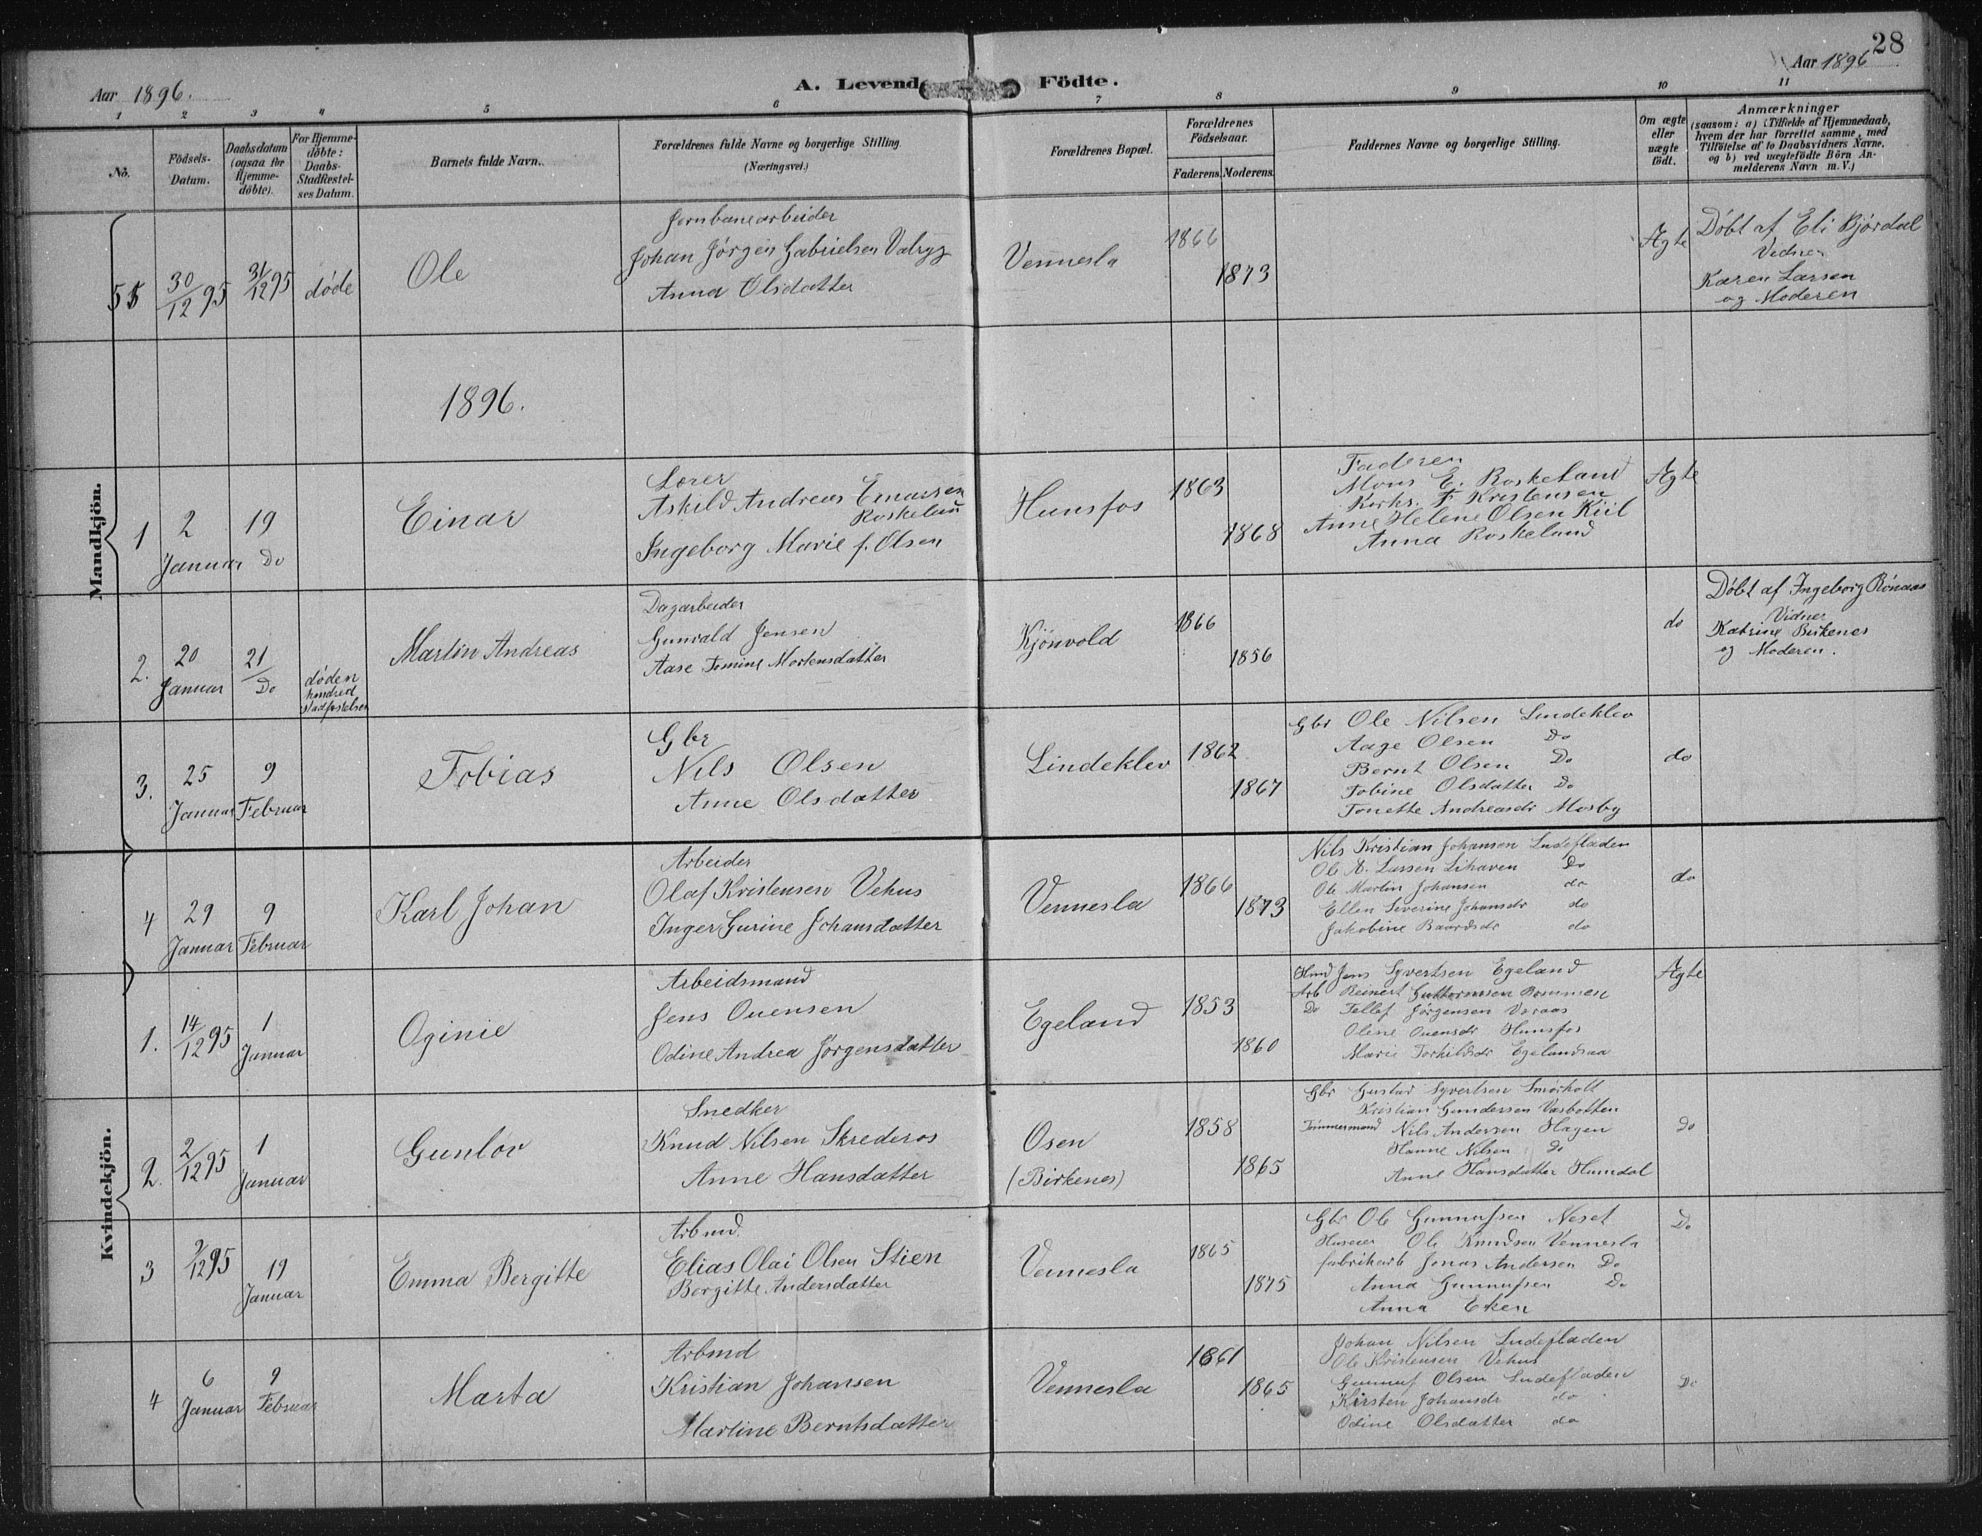 28
Aar 1896.
A. Levende Födte.
Aar 1896
1 2 3 4 5 6 7 8 9 10 11
No.
Födsels-Datum.
Daabsdatum (ogsaa for Hjemme-döbte).
For Hjemme-döbte: Daabs-Stadfæstel-ses Datum.
Barnets fulde Navn.
Forældrenes fulde Navne og borgerlige Stilling
(Næringsvei.)
Forældrenes Bopæl.
Forældrenes Födselsaar.
Faderens. Moderens.
Faddernes Navne og borgerlige Stilling.
Om ægte eller uægte födt.
Anmærkninger
(saasom: a) i Tilfælde af Hjemmedaab,
hvem der har forrettet samme, med
Tilföielse af to Daabsvidners Navne,
og b) ved uægtefödte Börn An-
melderens Navn m. V.)
Mandkjön.
55 30/12 95 31/12 95 døde
Ole
Jernbanearbeider
Johan Jørgen Gabrielsen
Anna Olsdatter
Vennesla
1866
1873
Ægte
Døbt af Eli Bjørdal
Vidner
Karen Larsen
og Moderen
1896.
1 2 Januar 19 Do
Einar
Lærer
Askild Andreas Roskeland
Ingeborg Marie f. Olsen
Hunsfos
1863
1868
Faderen
Mons E. Roskeland
F Kristensen
Anne Helene Olsen Kiil
Anna Roskeland
Ægte
2. 20 Januar 21 Do døden
Martin Andreas
Dagarbeider
Gunvald Jensen
Aase Tomine Mortensdatter
Kjönvold
1866
1856
do
Døbt af Ingeborg Rönaas
Vidner
Katrine Birkenes
og Moderen.
3. 25 Januar 9 Februar
Tobias
Gbr
Nils Olsen
Anne Olsdatter
Lindeklev
1862
1867
Gbr Ole Nilsen Lindeklev
Aage Olsen Do
Bernt Olsen Do
Tobine Olsdatter Do
Tonette Andreasdr Mosby
do
4 29 Januar 9 Februar
Karl Johan
Arbeider
Olaf Kristensen Vehus
Inger Gurine Johansdatter
Vennesla
1866
1873
Nils Kristian Johansen Lindefladen
Ole A. Larsen Do
Ole Martin Johansen do
Ellen Severine Johansdr do
Jakobine Baardsdr do
do
Kvindekjön.
1. 14/12 95 1 Januar
Oginie
Arbeidsmand
Jens Ouensen
Odine Andrea Jörgensdatter
Egeland
1853
1860
Jens Syvertsen Egeland
Arb Reinert Guttormsen Rommen
Do Tellef Jörgensen Varaas
Oline Ouensdr Hunsfos
Marie Torkildsdr Egelandsaa
Ægte
2. 2/12 95 1 Januar
Gunlov
Snedker
Knud Nilsen Skrederos
Anne Hansdatter
Osen
(Birkenes)
1858
1865
Gbr Gustav Syvertsen Smörholt
Kristian Gundersen Vasbotten
Tömmermand Nils Andersen Hagen
Hanne Nilsen Do
Anne Hansdatter Humdal
do
3 2/12 95 19 Januar
Emma Bergitte
Arbmd.
Elias Olai Olsen Stien
Bergitte Andersdatter
Vennesla
1865
1875
Gbr Ole Gunnufsen Neset
Huseier Ole Knudsen Vennesla
fabrikarb Jonas Andersen Do
Anna Gunnufsen Do
Anna Eken
Do
4 6 Januar 9 Februar
Marta
Arbmd
Kristian Johansen
Martine Berntsdatter
Vennesla
1861
1865
Johan Nilsen Lindefladen
Ole Kristensen Vehus
Gunnuf Olsen Lindefladen
Kirsten Johansdr do
Odine Olsdatter do
Do